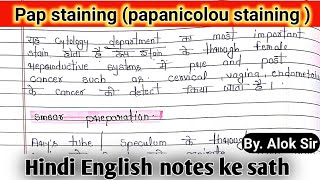 Pap staining (papanicolou staining )
यह cytology department का most important
stain होता है इस stain के through female
reproductive systems में pre and post
cancer such as . cervical, vagina, endometrial
के cancer को detect किया जाता है ।
smear preparation.
Ary's tube | speculum के through
By. Alok Sir
Hindi English notes ke sath